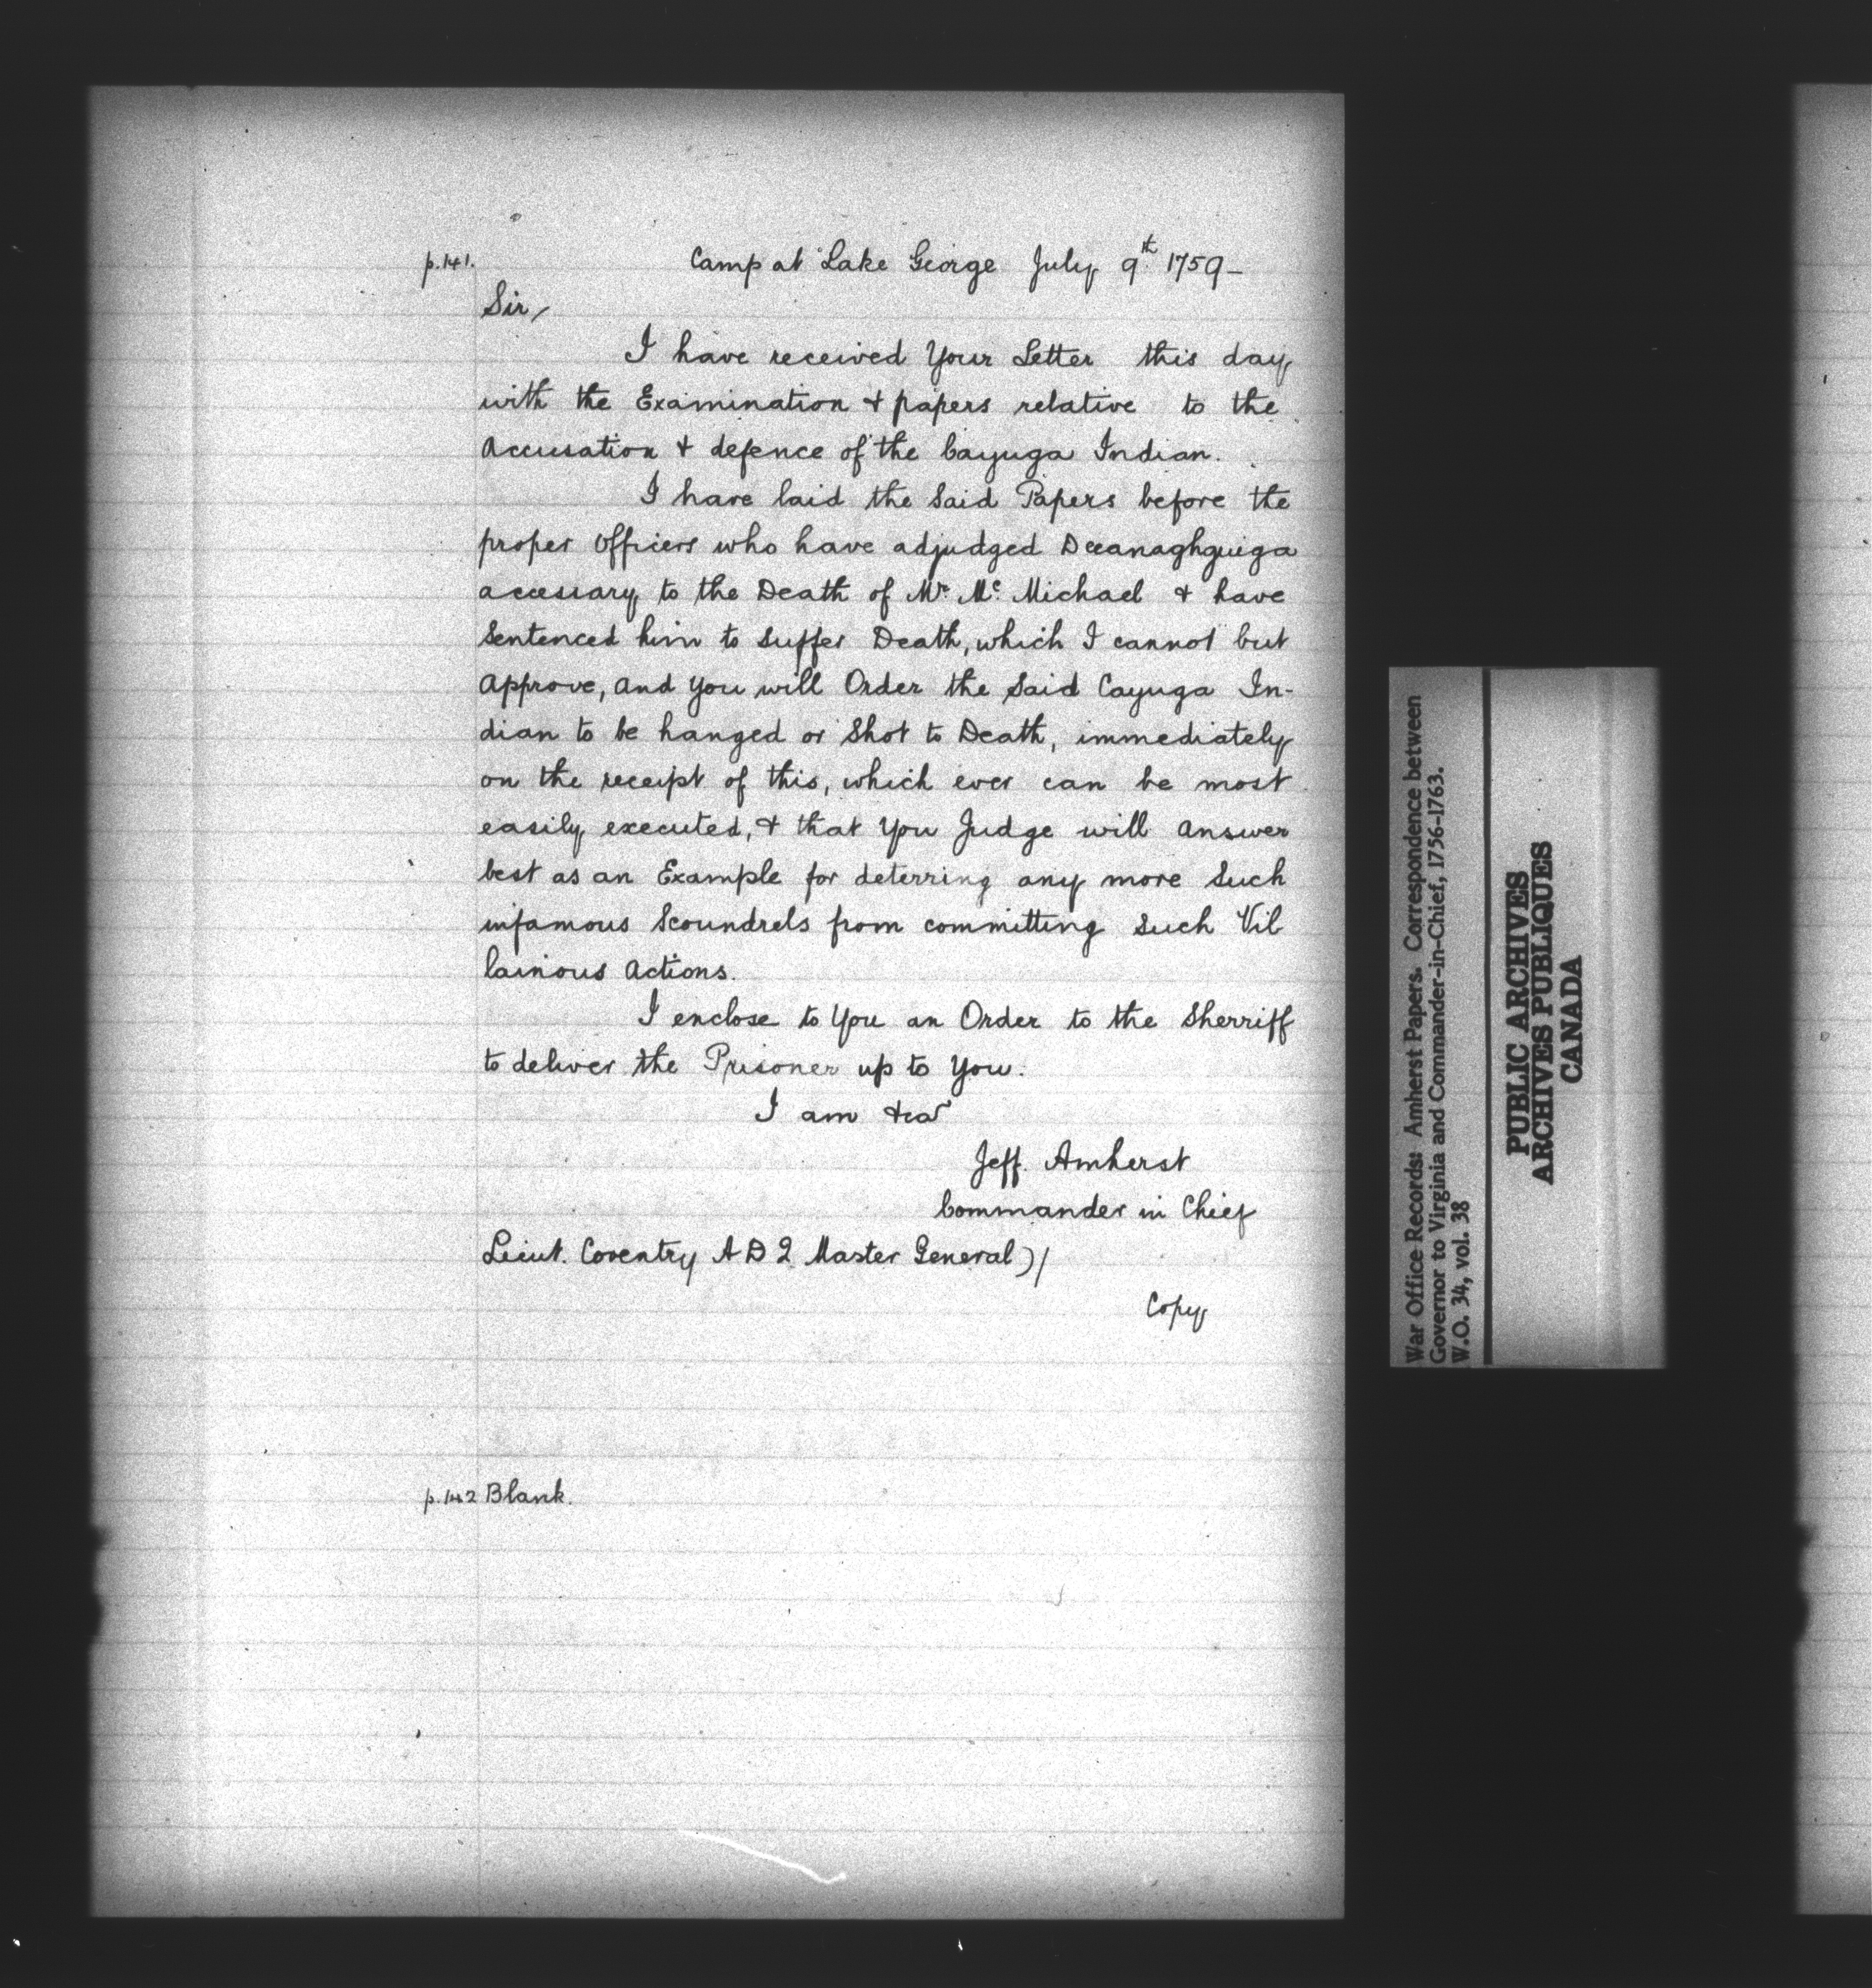 p.141. Camp at Lake George July 9th 1759 -
Sir,
I have received Your Letter this day
with the Examination & papers relative to the
Accusation & defence of the Cayuga Indian.
I have laid the Said Papers before the
proper Officers who have adjudged Deeanaghguiga
accessary to the Death of Mr. Mc. Michael & have
Sentenced him to Suffer Death, which I cannot but
Approve, and You will Order the Said Cayuga In-
dian to be hanged or Shot to Death, immediately
on the receipt of this, which ever can be most
easily executed, & that You Judge will answer
best as an Example for deterring any more Such
infamous Scoundrels from committing Such Vil
lainous Actions.
I enclose to You an Order to the Sherriff
to deliver the Prisoner up to You.
I am &ca
Jeff. Amherst
Commander in Chief
Lieut. Coventry A D Q Master General)/
Copy
p.142 Blank.
War Office Records: Amherst Papers. Correspondence between
Governor to Virginia and Commander-in-Chief, 1756-1763.
W.O. 34, vol. 38
PUBLIC ARCHIVES
ARCHIVES PUBLIQUES
CANADA